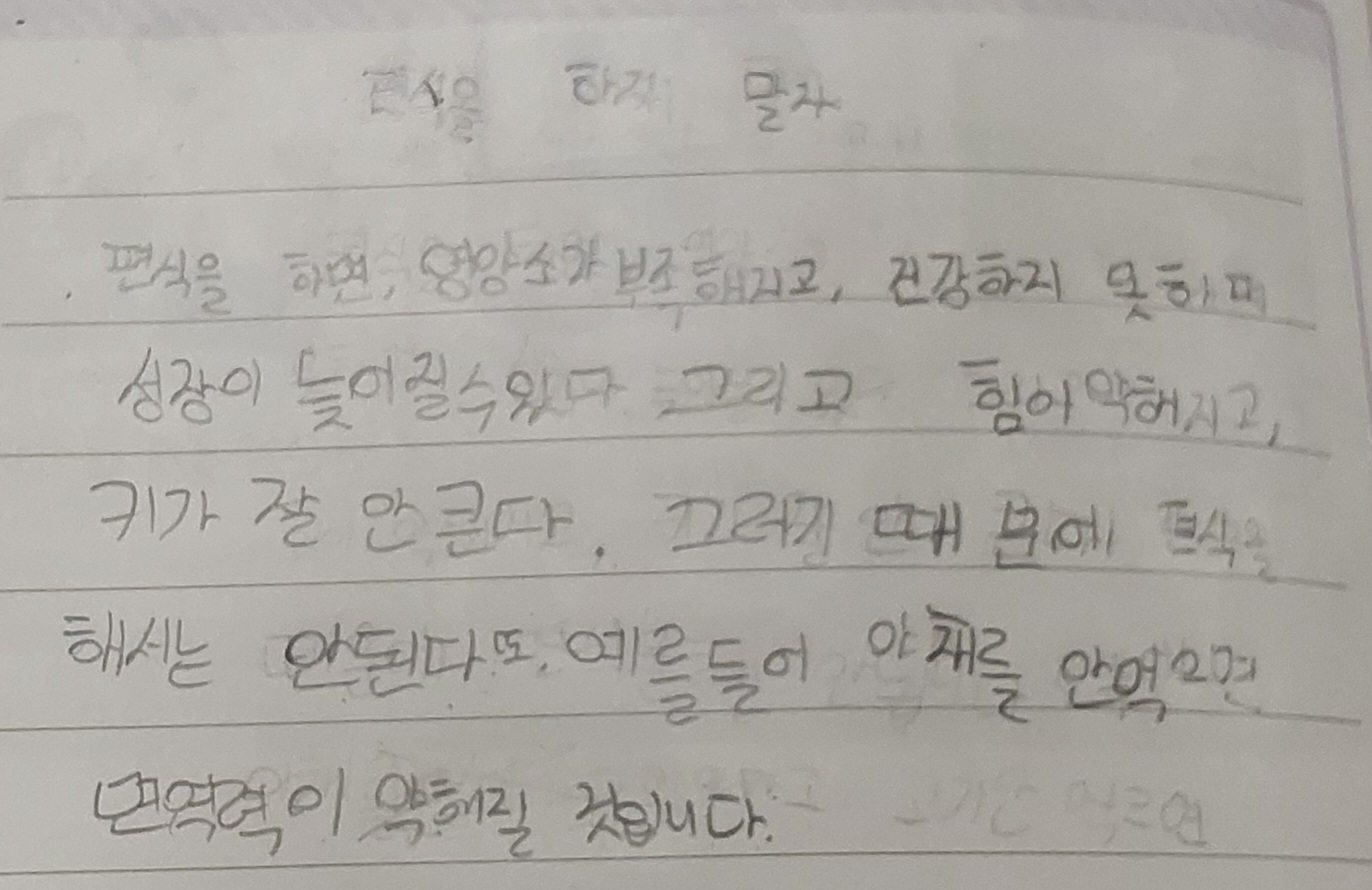 편식을 하지 말자
편식을 하면, 영양소가 부족해지고, 건강하지 못하며
성장이 늦어질수있다 그리고 힘이 약해지고,
키가 잘 안 큰다. 그러기 때문에 편식을
해서는 안된다 또, 예를들어 야채를 안먹으면
면역력이 약해질 것입니다.